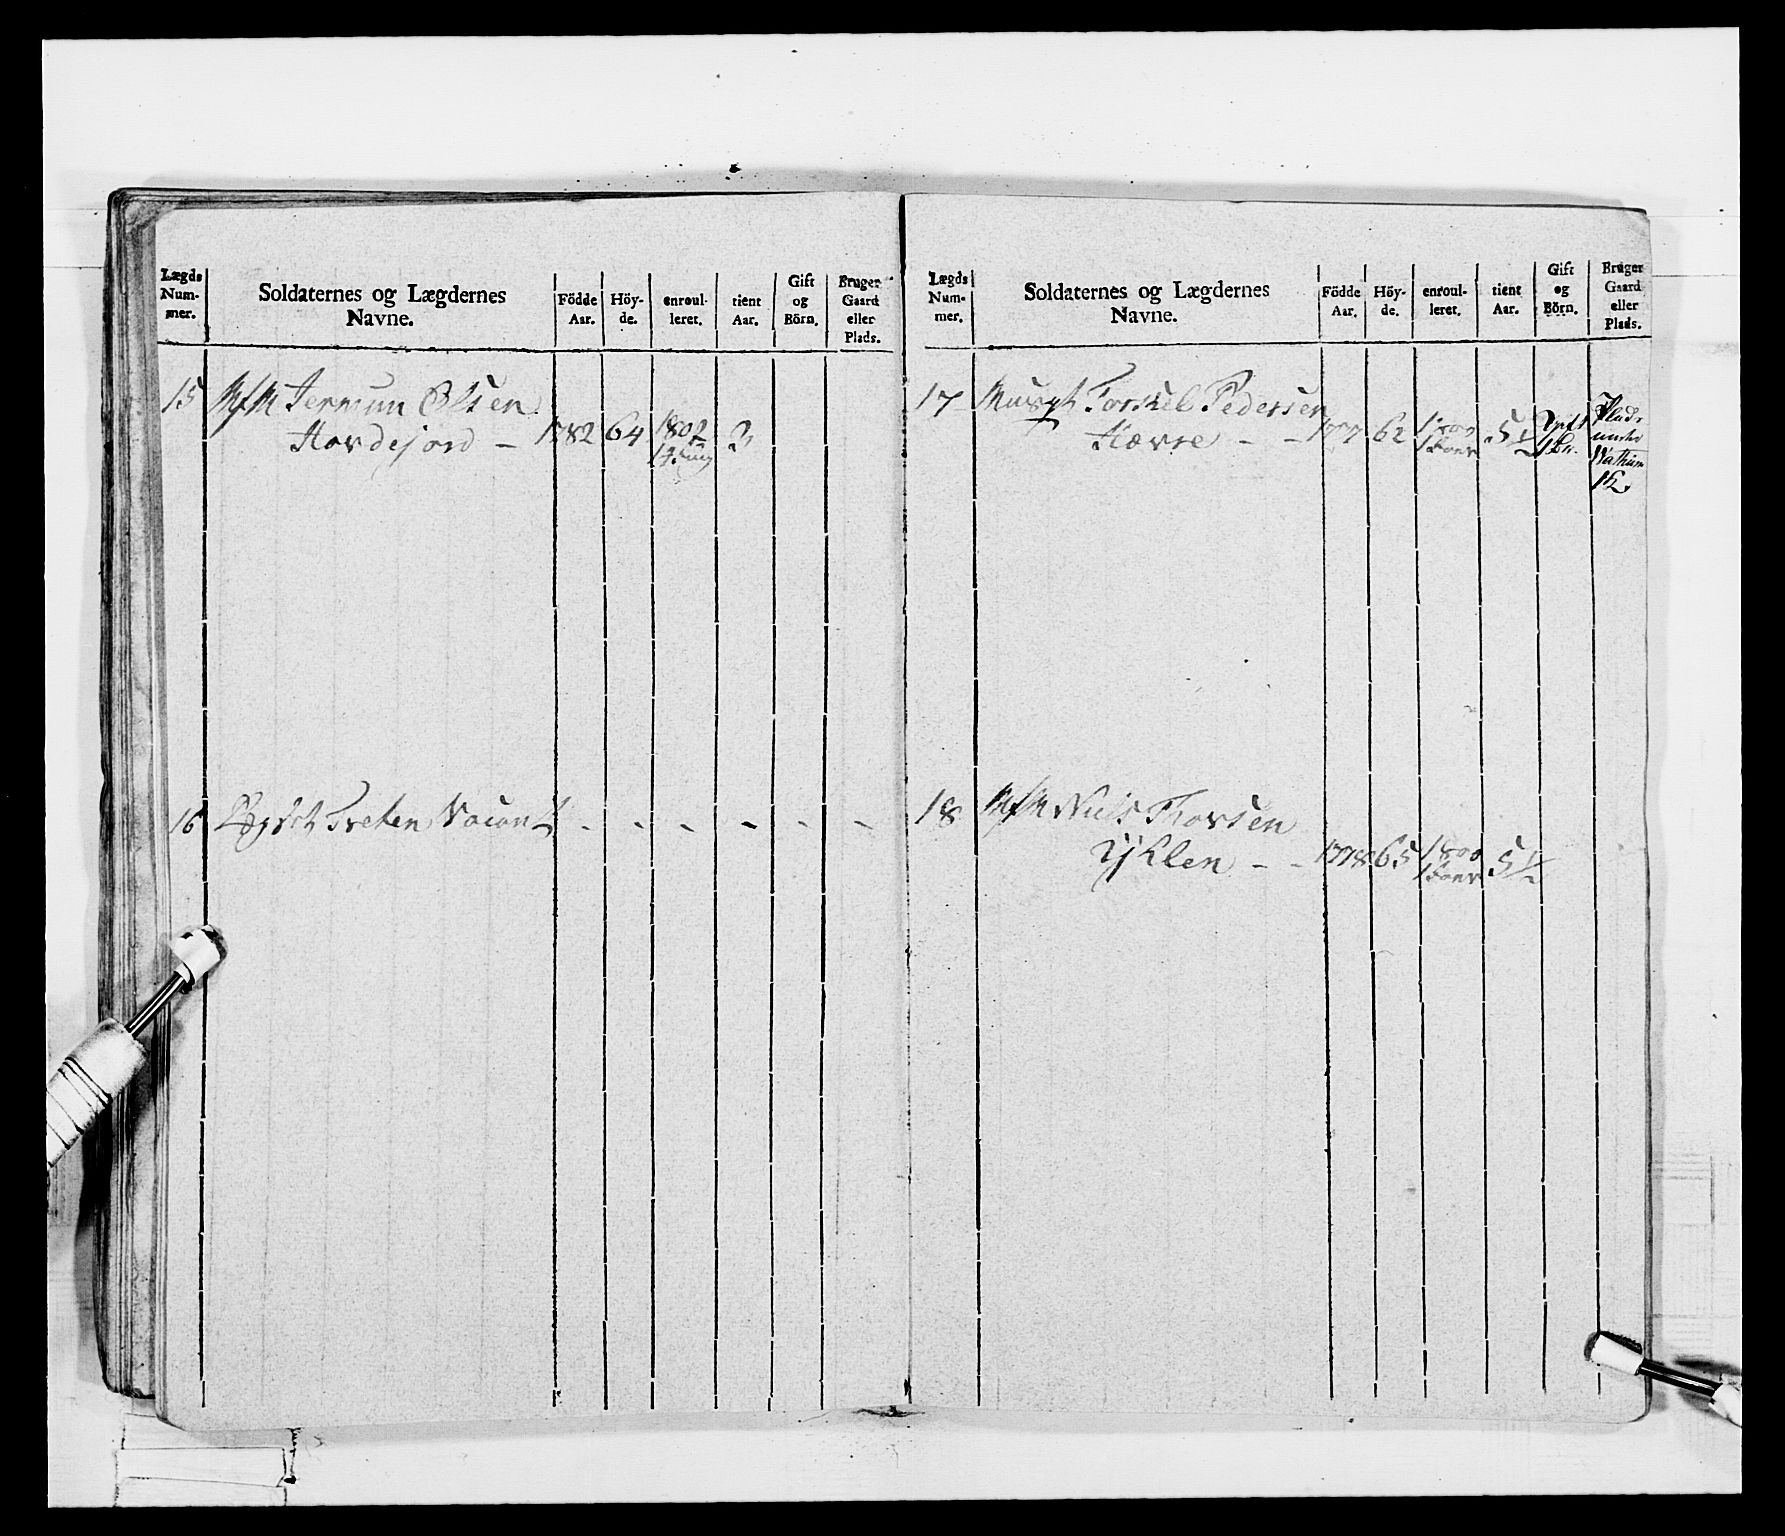 Lægds
Num-
mer.
Soldaternes og Lægdernes
Navne.
Födde
Aar.
Höy-
de.
enroul-
leret.
tient
Aar.
Gift
og
Börn.
Bruger
Gaard
eller
Plads.
15 Olsen
Hovdejord - 1782 64 1802 3
16 Treten Vacant - - - - - -
Lægds
Num-
mer.
Soldaternes og Lægdernes
Navne.
Födde
Aar.
Höy-
de.
enroul-
leret.
tient
Aar.
Gift
og
Börn.
Bruger
Gaard
eller
Plads.
17 Torkel Pedersen
Hævre - - 1777 62 1800 5½ Gift Plads
1 Janr 1 Bn. under
18 Niels Thorsen
- - 1778 65 1800 5½
1 Janr